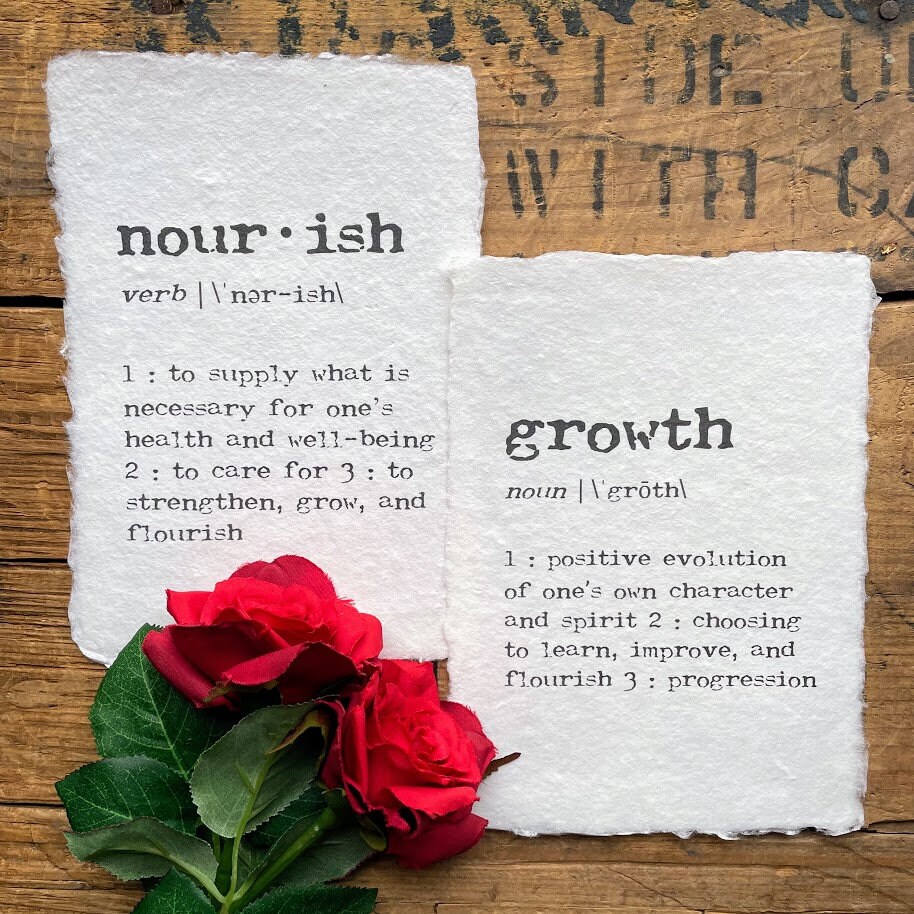 SIDE U
WITH CA
nour·ish
verb | \ˈnər-ish\
1 : to supply what is
necessary for one's
health and well-being
2 : to care for 3 : to
strengthen, grow, and
flourish
growth
noun | \ˈgrōth\
1 : positive evolution
of one's own character
and spirit 2 : choosing
to learn, improve, and
flourish 3 : progression